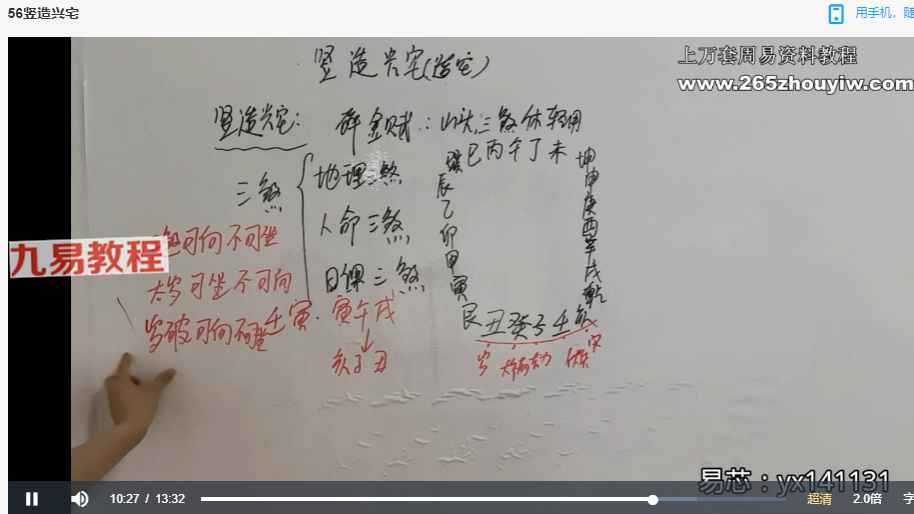 56竖造兴宅
用手机，随
上万套周易资料教程
www.265zhouyiw.com
竖造兴宅(造宅)
竖造兴宅：
碎金赋：山头三煞休轻用
三煞
地理三煞
人命三煞
日课三煞
巽巳丙午丁未坤
辰乙卯甲寅
申庚酉辛戌乾
艮丑癸子壬亥
可向不可坐
太岁可坐不可向
岁破可向不可坐
壬寅．寅午戌
亥子丑
九易教程
易芯：yx141131
10:27 / 13:32
超清
2.0倍
字